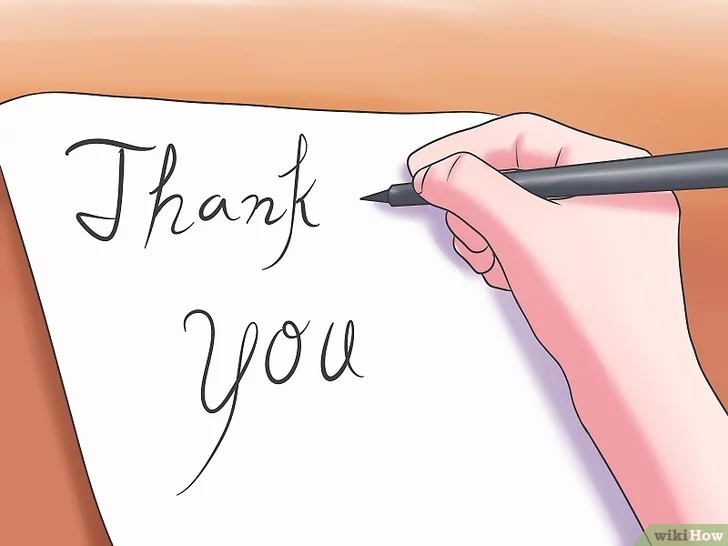 Thank
You
wikiHow